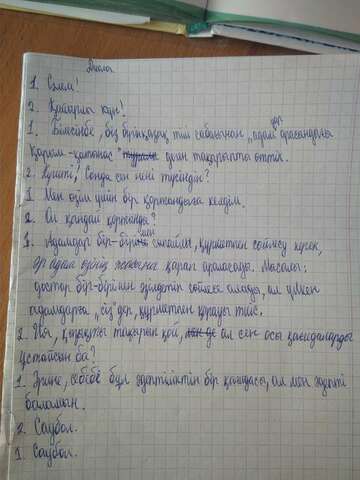 Диалог
1. Сәлем!
2. Қайырлы күн!
1. Білесіңбе, біз бүгін қазақ тілі сабағынан "адамдар арасындағы
Қарым-қатынас" деген тақырыпты өттік.
2. Күшті! Сонда сен нені түсіндің?
1. Мен өзім үшін бір қортындыға келдім.
2. Ол қандай қортынды?
1. Адамдар бір-бірімен сыпайлы, құрметпен сөйлесу керек,
әр адам өзінің жасына қарап араласады. Мысалы:
достар бір-бірімен әзілдетіп сөйлесе алады, ал үлкен
адамдарға "сіз" деп, құрметпен қарауы тиіс.
2. Иә, қызықты тақырып қой, ал сен осы қағидаларды
ұстайсан ба?
1. Әрине, себебі бұл әдептіліктің бір қағидасы, ал мен әдепті
баламын.
2. Саубол.
1. Саубол.